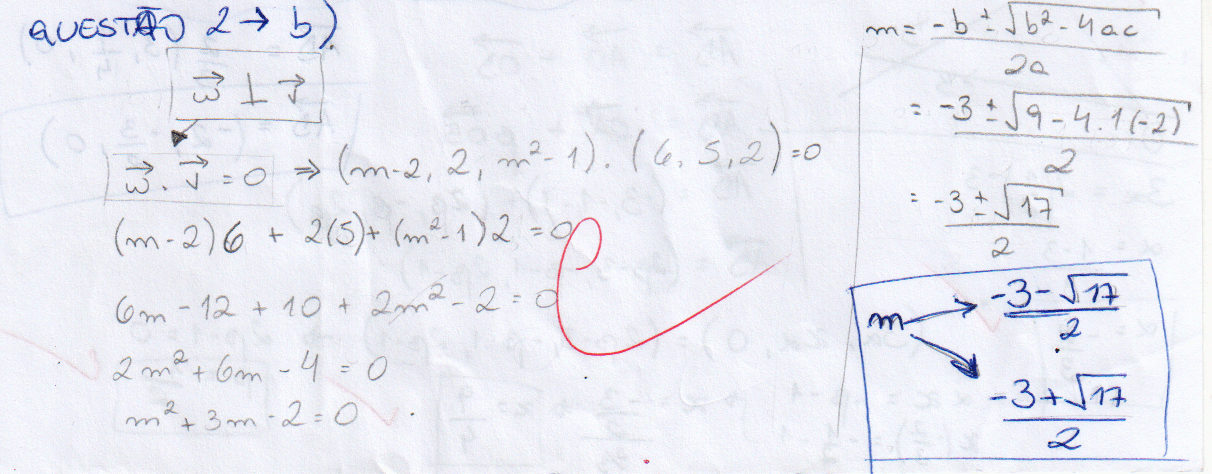 QUESTÃO 2 → b)
w⃗ ⊥ v⃗
w⃗ . v⃗ = 0 ⇒ (m-2, 2, m²-1) . (6, 5, 2) = 0
(m-2)6 + 2(5) + (m²-1)2 = 0
6m - 12 + 10 + 2m² - 2 = 0
2m² + 6m - 4 = 0
m² + 3m - 2 = 0
m = -b ± √(b² - 4ac) / 2a
= -3 ± √(9 - 4.1(-2)) / 2
= -3 ± √17 / 2
m → -3 - √17 / 2
→ -3 + √17 / 2